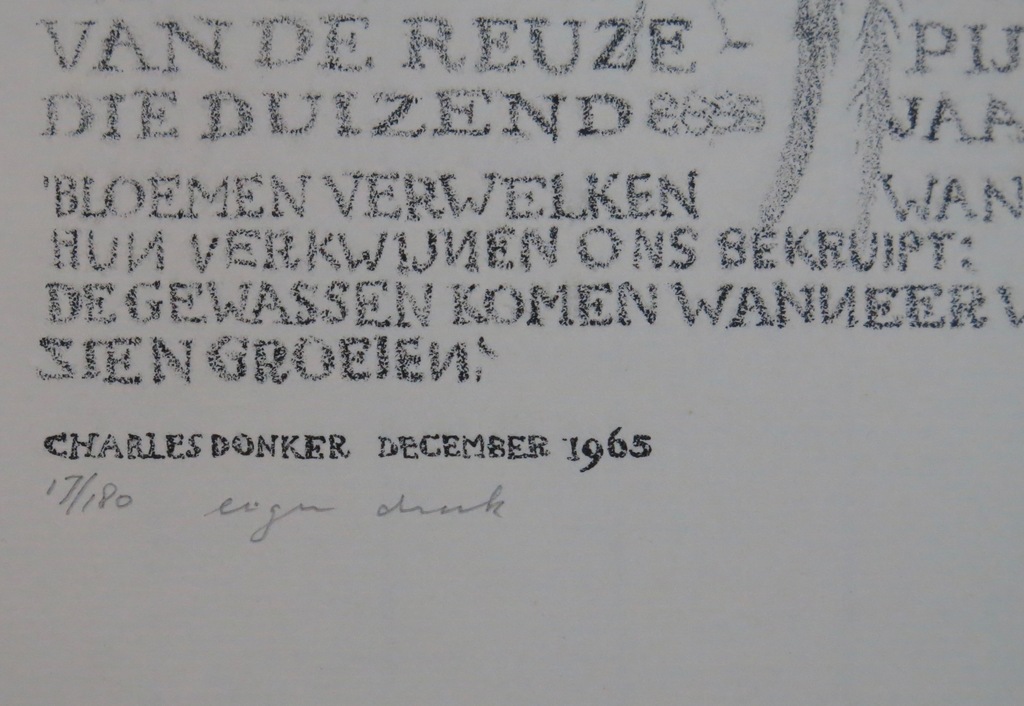 VAN DE REUZE PIJ
DIE DUIZEND JAA
'BLOEMEN VERWELKEN WAN
HUN VERKWIJNEN ONS BEKRUIPT:
DE GEWASSEN KOMEN WANNEER
ZIEN GROEIEN.'
CHARLES DONKER DECEMBER 1965
17/180 eigen druk